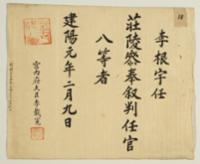 李根宇任
莊陵參奉叙判任官
八等者
建陽元年二月九日
宮內府大臣李載冕